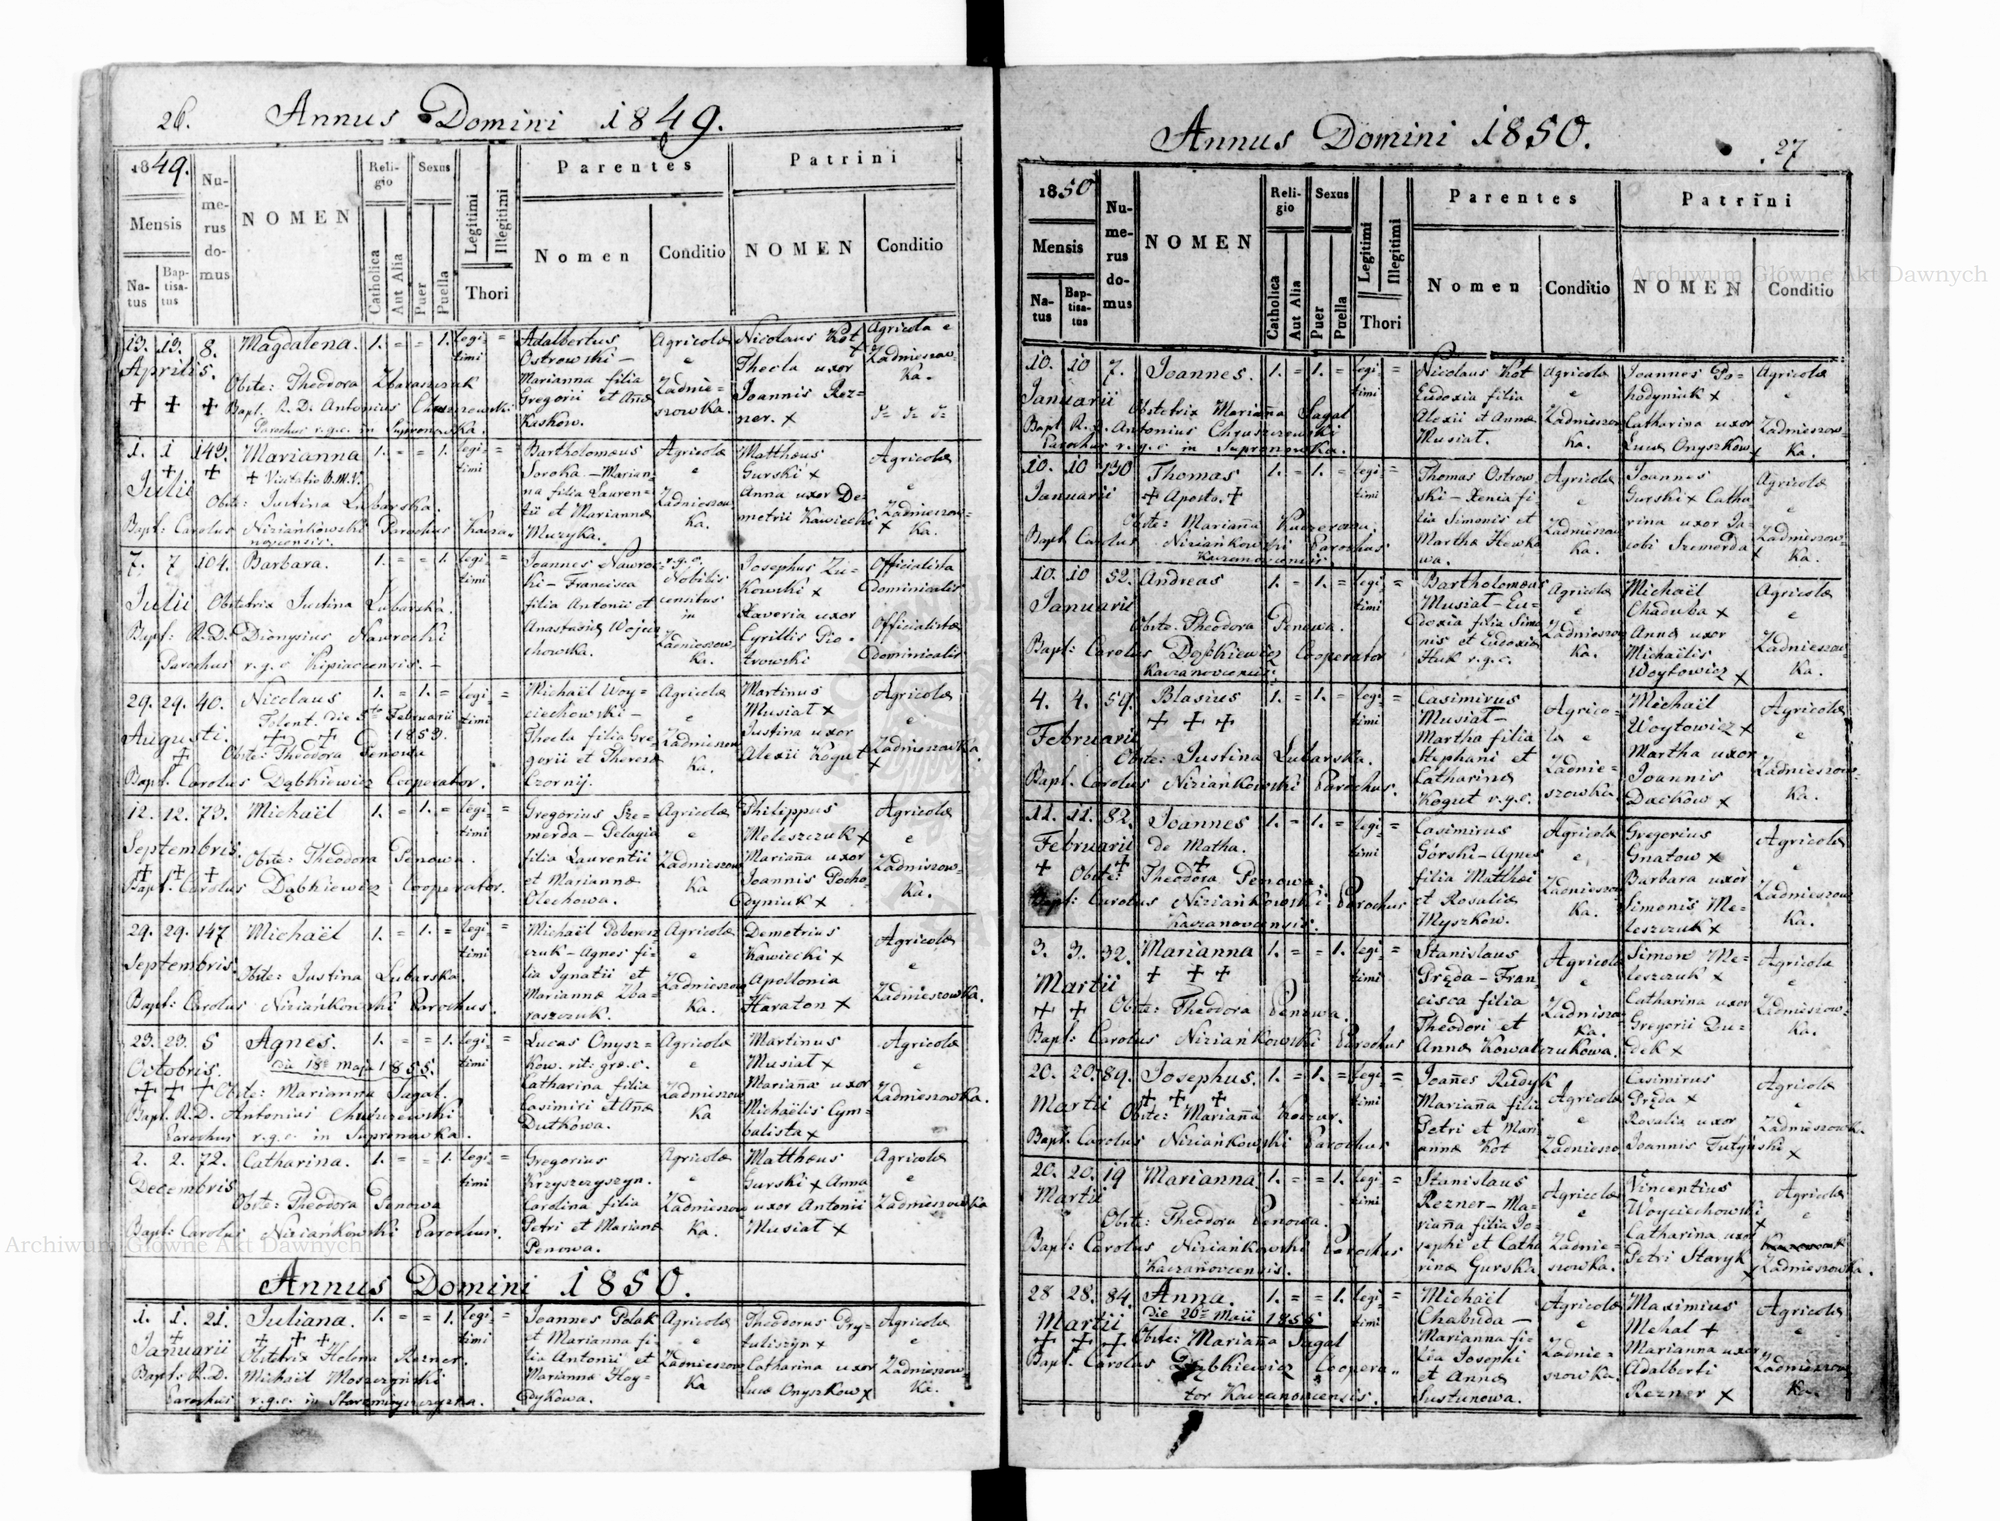 26.
Annus Domini 1849.
1849.
Mensis
Na-
tus
Bap-
tisa-
tus
Nu-
me-
rus
do-
mus
NOMEN
Reli-
gio
Catholica
Aut Alia
Sexus
Puer
Puella
Legitimi
Illegitimi
Thori
Parentes
Nomen
Conditio
Patrini
NOMEN
Conditio
13. 13. 8. Magdalena. 1. = = 1. legi-
timi
Aprilis.
Obste: Theodora Zbaraszczuk
Bapt. R. D. Antonius Chruszczowski
Parochus r.g.c. in Supronowka.
Adalbertus
Ostrowski –
Marianna filia
Gregorii et Annæ
Kaskow.
Agricolæ
e
Zadnie=
szowka.
Nicolaus Kot
Thecla uxor
Joannis Rez-
ner. x
Agricola e
Zadnieszow-
ka.
1. 1 149. Marianna 1. = = 1. legi-
timi
+ Visitatio B.M.V.
Julii
Obste: Justina Lubarska.
Bapt: Carolus Niziańkowski Parochus Kacza-
novcensis.
Bartholomæus
Soroka – Marian-
na filia Lauren-
tii et Mariannæ
Muzyka.
Agricolæ
e
Zadnieszow-
ka.
Matthæus
Gurski x
Anna uxor De-
metrii Kawiecki
Agricolæ
e
Zadnieszow-
ka.
7. 7 104. Barbara. 1. = = 1. legi-
timi
Julii Obstetrix Justina Lubarska.
Bapt: R.D. Dionysius Nawrocki
Parochus r.g.c Kipiaccensis. –
Joannes Nawro-
cki – Francisca
filia Antonii et
Anastasiæ Wojcie-
chowska.
r.g.c.
Nobilis
censitus
in
Zadnieszow-
ka.
Josephus Zu-
kowski x
Xaveria uxor
Cyrillis Pio-
trowski
Officialista
Dominicalis
Officialista
Dominicalis
29. 29. 40. Nicolaus 1. = 1. = legi- =
timi
Tolent. die 5ta Februarii
1853.
Augusti.
Obste: Theodora Penowa
Bapt. Carolus Dąbkiewicz Cooperator.
Michaël Woy=
ciechowski –
Thecla filia Gre-
gorii et Theresæ
Czornij.
Agricolæ
e
Zadnieszow
ka.
Martinus
Musiat x
Justina uxor
Alexii Kogut x
Agricolæ
e
Zadnieszowka
12. 12. 73. Michaël 1. = 1. = legi- =
timi
Septembris.
Obste: Theodora Penowa.
Bapt. Carolus Dąbkiewicz Cooperator.
Gregorius Sze-
merda – Pelagia
filia Laurentii
et Mariannæ
Olechowa.
Agricolæ
e
Zadnieszow
ka
Philippus
Meleszczuk x
Marianna uxor
Joannis Pocho-
dyniuk x
Agricolæ
e
Zadnieszow-
ka.
29. 29. 147 Michaël 1. = 1. = legi- =
timi
Septembris.
Obste: Justina Lubarska.
Bapt: Carolus Niziańkowski Parochus.
Michaël Poberez
czuk – Agnes fi-
lia Ignatii et
Mariannæ Zba-
raszczuk.
Agricolæ
e
Zadnieszow
ka.
Demetrius
Kawiecki x
Apollonia
Haraton x
Agricolæ
e
Zadnieszowka.
23. 23. 5 Agnes. 1. = = 1. legi- =
timi
die 18a Maja 1855.
Octobris.
Obste: Marianna Sagal.
Bapt. R.D. Antonius Chruszczewski
Parochus r.g.c. in Supronowka.
Lucas Onysz-
kow. rit: græ. c.
Catharina filia
Casimiri et Annæ
Dutkowa.
Agricolæ
e
Zadnieszow
ka
Martinus
Musiat x
Marianna uxor
Michaëlis Cym-
balista x
Agricolæ
e
Zadnieszowka.
2. 2. 72. Catharina. 1. = = 1. legi- =
timi
Decembris
Obste: Theodora Penowa
Bapt: Carolus Niziańkowski Parochus.
Gregorius
Krzyszczyszyn.
Carolina filia
Petri et Mariannæ
Penowa.
Agricolæ
e
Zadnieszow
ka.
Matthæus
Gurski x Anna
uxor Antonii
Musiat x
Agricolæ
e
Zadnieszowka
Annus Domini 1850.
1. 1. 21. Juliana. 1. = = 1. legi- =
timi
Januarii
Obstetrix Helena Rezner.
Bapt: R.D. Michaël Moszczyński
Parochus r.g.c. in
Joannes Polak
et Marianna fi-
lia Antonii et
Mariannæ Hay-
dykowa.
Agricolæ
e
Zadnieszow
ka
Theodorus Pry-
tuliszyn x
Catharina uxor
Lucæ Onyszkow x
Agricolæ
e
Zadnieszow
ka.
Annus Domini 1850.
27
1850
Mensis
Na-
tus
Bap-
tisa-
tus
Nu-
me-
rus
do-
mus
NOMEN
Reli-
gio
Catholica
Aut Alia
Sexus
Puer
Puella
Legitimi
Illegitimi
Thori
Parentes
Nomen
Conditio
Patrini
NOMEN
Conditio
10. 10 7. Joannes. 1. = 1. = legi- =
timi
Januarii
Obstetrix Marianna Sagal
Bapt R. D. Antonius Chruszczewski
Parochus r.g.c in Supronowka.
Nicolaus Kot
Eudoxia filia
Alexii et Annæ
Musiat.
Agricolæ
e
Zadnieszow
ka.
Joannes Po-
hodyniuk x
Catharina uxor
Lucæ Onyszkow x
Agricolæ
e
Zadnieszow-
ka.
10. 10 130 Thomas 1. = 1. = legi- =
timi
+ Aposto. +
Januarii
Obste: Marianna Kuczerowa.
Bapt Carolus Niziańkowski Parochus
Kaczanovcensis.
Thomas Ostrow
ski – Xenia fi-
lia Simonis et
Marthæ Hewka
wa.
Agricolæ
e
Zadnieszow
ka.
Joannes
Gurski x Catha
rina uxor Ja-
cobi Szemerda
Agricolæ
e
Zadnieszow-
ka.
10. 10 52. Andreas 1. = 1. = legi- =
timi
Januarii
Obste: Theodora Penowa.
Bapt: Carolus Dąbkiewicz Cooperator
Kaczanovcensis.
Bartholomæus
Musiat – Eu-
doxia filia Simo
nis et Eudoxiæ
Huk r.g.c.
Agricolæ
e
Zadnieszow
ka.
Michaël
Chaduba x
Anna uxor
Michaëlis
Woytowicz x
Agricolæ
e
Zadnieszow-
ka.
4. 4. 59. Blasius 1. = 1. = legi- =
timi
Februarii
Obste: Justina Lubarska.
Bapt: Carolus Niziańkowski Parochus.
Casimirus
Musiat –
Martha filia
Stephani et
Catharinæ
Kogut r.g.c.
Agrico-
læ e
Zadnie-
szowka
Michaël
Woytowicz x
Martha uxor
Joannis
Dackow x
Agricolæ
e
Zadnieszow-
ka.
11. 11. 82. Joannes 1. = 1. = legi- =
timi
Februarii de Matha.
Obste: Theodora Penowa.
Bapt: Carolus Niziańkowski Parochus
Kaczanovcensis.
Casimirus
Górski – Agnes
filia Matthæi
et Rosaliæ
Myszkow.
Agricolæ
e
Zadnieszow
ka.
Gregorius
Gnatow x
Barbara uxor
Simonis Me-
leszczuk x
Agricolæ
e
Zadnieszow
ka.
3. 3. 32. Marianna 1. = = 1. legi- =
timi
Martii
Obste: Theodora Penowa.
Bapt: Carolus Niziańkowski Parochus
Stanislaus
Pręda – Fran
cisca filia
Theodori et
Annæ Kowalczukowa.
Agricolæ
e
Zadniesz
ka.
Simon Me-
leszczuk x
Catharina uxor
Gregorii Du-
dek x
Agricolæ
e
Zadnieszow-
ka.
20. 20. 89. Josephus. 1. = 1. = legi- =
timi
Martii
Obste: Marianna Koczur.
Bapt. Carolus Niziańkowski Parochus
Joannes Rudyk
Marianna filia
Petri et Mari
annæ Kot
Agricolæ
e
Zadnieszo
Casimirus
Pręda x
Rosalia uxor
Joannis Tutyński x
Agricolæ
e
Zadnieszowka.
20. 20. 19 Marianna. 1. = = 1. legi- =
timi
Martii
Obste: Theodora Penowa.
Bapt: Carolus Niziańkowski Parochus
Kaczanovcensis.
Stanislaus
Rezner – Ma-
rianna filia Jo-
sephi et Catha
rinæ Gurska
Agricolæ
e
Zadnie-
szowka.
Vincentius
Woyciechowski x
Catharina uxor
Petri Staryk
Agricolæ
e
Zadnieszowka.
28 28. 84. Anna. 1. = = 1. legi- =
timi
die 26a Maii 1855
Martii
Obste: Marianna Sagal
Bapt. Carolus Dąbkiewicz Coopera-
tor Kaczanovcensis.
Michaël
Chabuda –
Marianna fi-
lia Josephi
et Annæ
Sustunowa.
Agricolæ
e
Zadnie-
szowka.
Maximius
Mehal +
Marianna uxor
Adalberti
Rezner x
Agricolæ
e
Zadnieszow
ka.
Archiwum Główne Akt Dawnych
Archiwum Główne Akt Dawnych